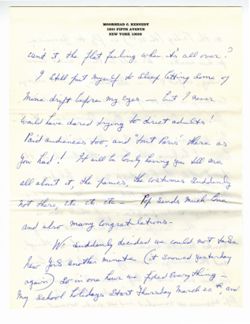 MOORHEAD C. KENNEDY
1021 FIFTH AVENUE
NEW YORK 10028
isn't it, the flat feeling when it's all over?
I still put myself to sleep letting some of
mine drift before my eyes — but I never
would have dared trying to direct adults!
Paid audiences too, and "tout Paris" there as
you had! It will be lovely having you tell me
all about it, the panics, the costumes suddenly
not there, etc. etc. — Pip sends much love
and also many congratulations —
We suddenly decided we could not take
New York another minute (it snowed yesterday
again) So in one hour we fixed everything —
my school holidays start Thursday March 22 and